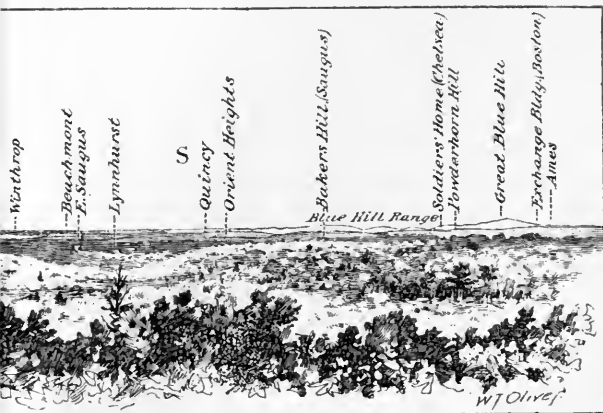 Winthrop
Beachmont
E. Saugus
Lynnhurst
S
Quincy
Orient Heights
Bakers Hill (Saugus)
Blue Hill Range
Soldiers' Home (Chelsea)
Powderhorn Hill
Great Blue Hill
Exchange Bldg. (Boston)
Ames
WJ Oliver